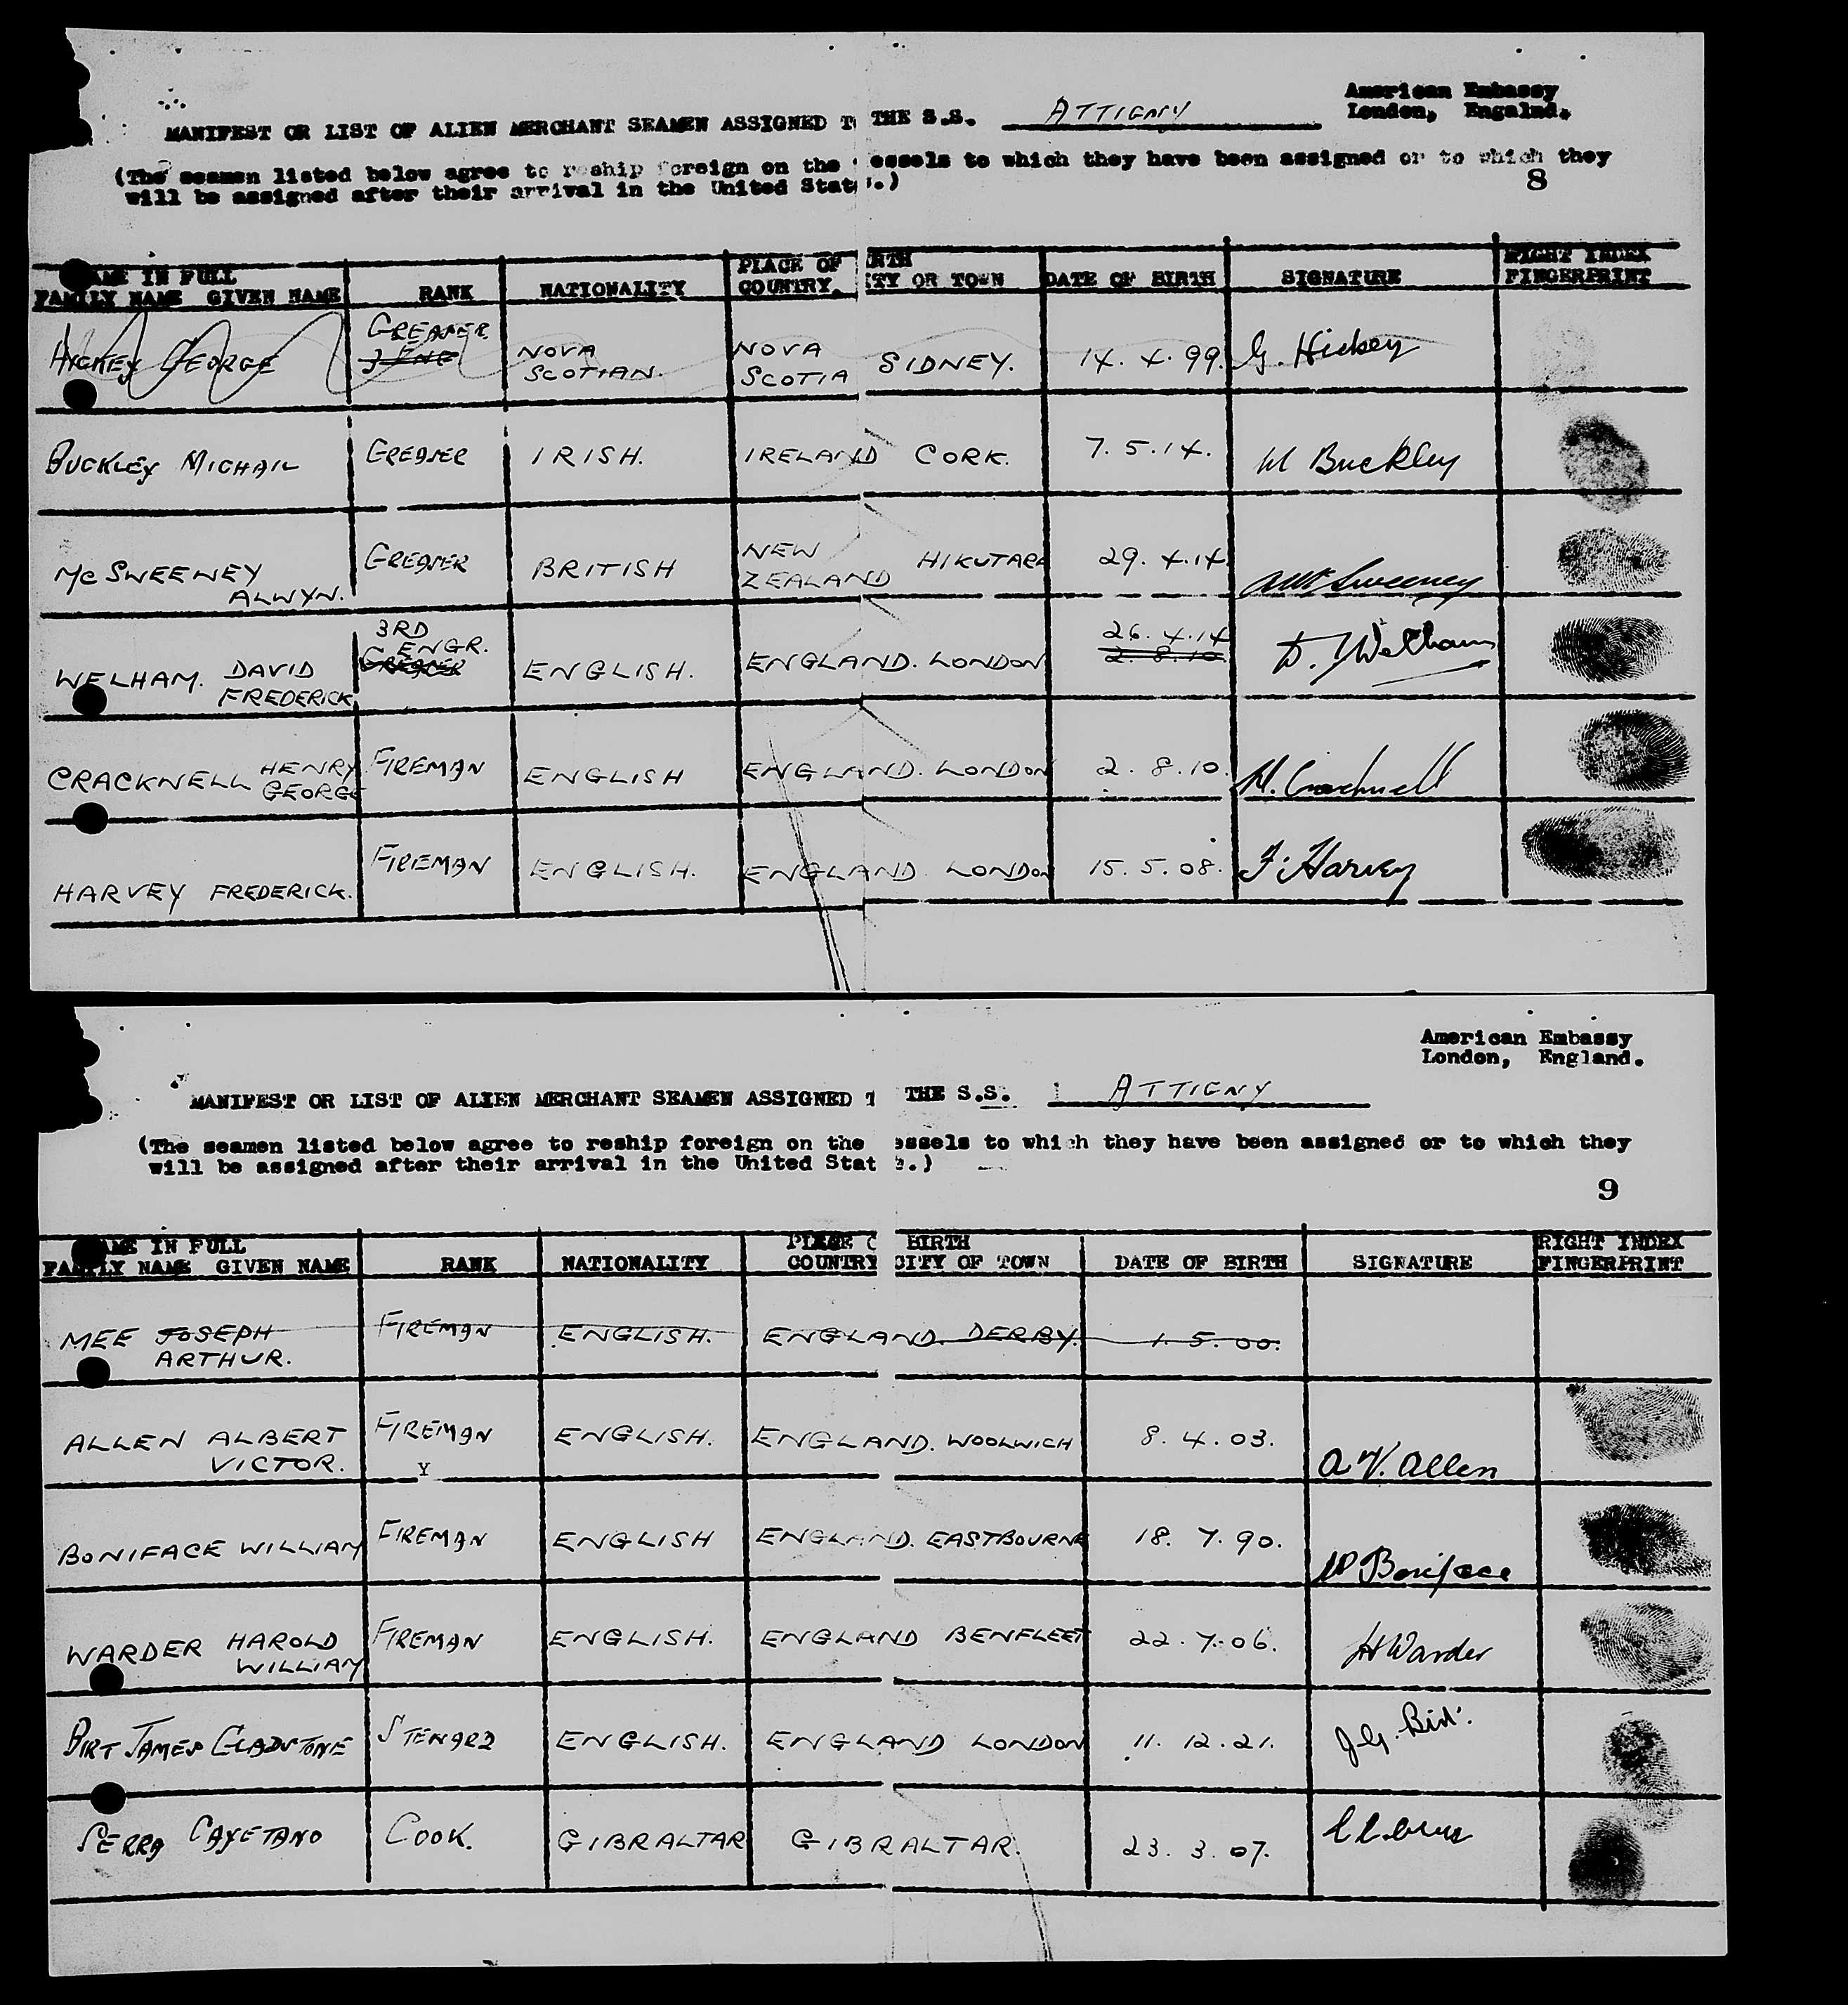 American Embassy
London, Engalnd.
MANIFEST OR LIST OF ALIEN MERCHANT SEAMEN ASSIGNED T THE S.S. ATTIGNY
(The seamen listed below agree to reship foreign on the essels to which they have been assigned or to which they
will be assigned after their arrival in the United Stat s.)
8
NAME IN FULL PLACE OF BIRTH RIGHT INDEX
FAMILY NAME GIVEN NAME RANK NATIONALITY COUNTRY. CITY OR TOWN DATE OF BIRTH SIGNATURE FINGERPRINT
HICKEY GEORGE GREASER NOVA SCOTIAN. NOVA SCOTIA SIDNEY. 14. 4. 99. G. Hickey
BUCKLEY MICHAIL GREASER IRISH. IRELAND CORK. 7. 5. 14. M Buckley
MCSWEENEY ALWYN. GREASER BRITISH NEW ZEALAND HIKUTARA 29. 4. 14 A McSweeney
WELHAM. DAVID FREDERICK 3RD ENGR. GREASER ENGLISH. ENGLAND. LONDON 26. 4. 14 2. 8. 10. D. F Welham
CRACKNELL HENRY GEORGE FIREMAN ENGLISH ENGLAND. LONDON 2. 8. 10. H. Cracknell
HARVEY FREDERICK. FIREMAN ENGLISH. ENGLAND. LONDON 15. 5. 08. F. Harvey
American Embassy
London, England.
MANIFEST OR LIST OF ALIEN MERCHANT SEAMEN ASSIGNED T THE S.S. ATTIGNY
(The seamen listed below agree to reship foreign on the essels to which they have been assigned or to which they
will be assigned after their arrival in the United Stat s.)
9
NAME IN FULL PLACE O BIRTH RIGHT INDEX
FAMILY NAME GIVEN NAME RANK NATIONALITY COUNTRY CITY OF TOWN DATE OF BIRTH SIGNATURE FINGERPRINT
MEE JOSEPH ARTHUR. FIREMAN ENGLISH. ENGLAND. DERBY. 1. 5. 00.
ALLEN ALBERT VICTOR. FIREMAN ENGLISH. ENGLAND. WOOLWICH 8. 4. 03. A V. Allen
Y
BONIFACE WILLIAM FIREMAN ENGLISH ENGLAND. EASTBOURNE 18. 7. 90. W Boniface
WARDER HAROLD WILLIAM FIREMAN ENGLISH. ENGLAND BENFLEET 22. 7. 06. H Warder
BIRT JAMES GLADSTONE STEWARD ENGLISH. ENGLAND LONDON 11. 12. 21. J.G. Birt.
SERRA CAYETANO COOK. GIBRALTAR GIBRALTAR. 23. 3. 07.